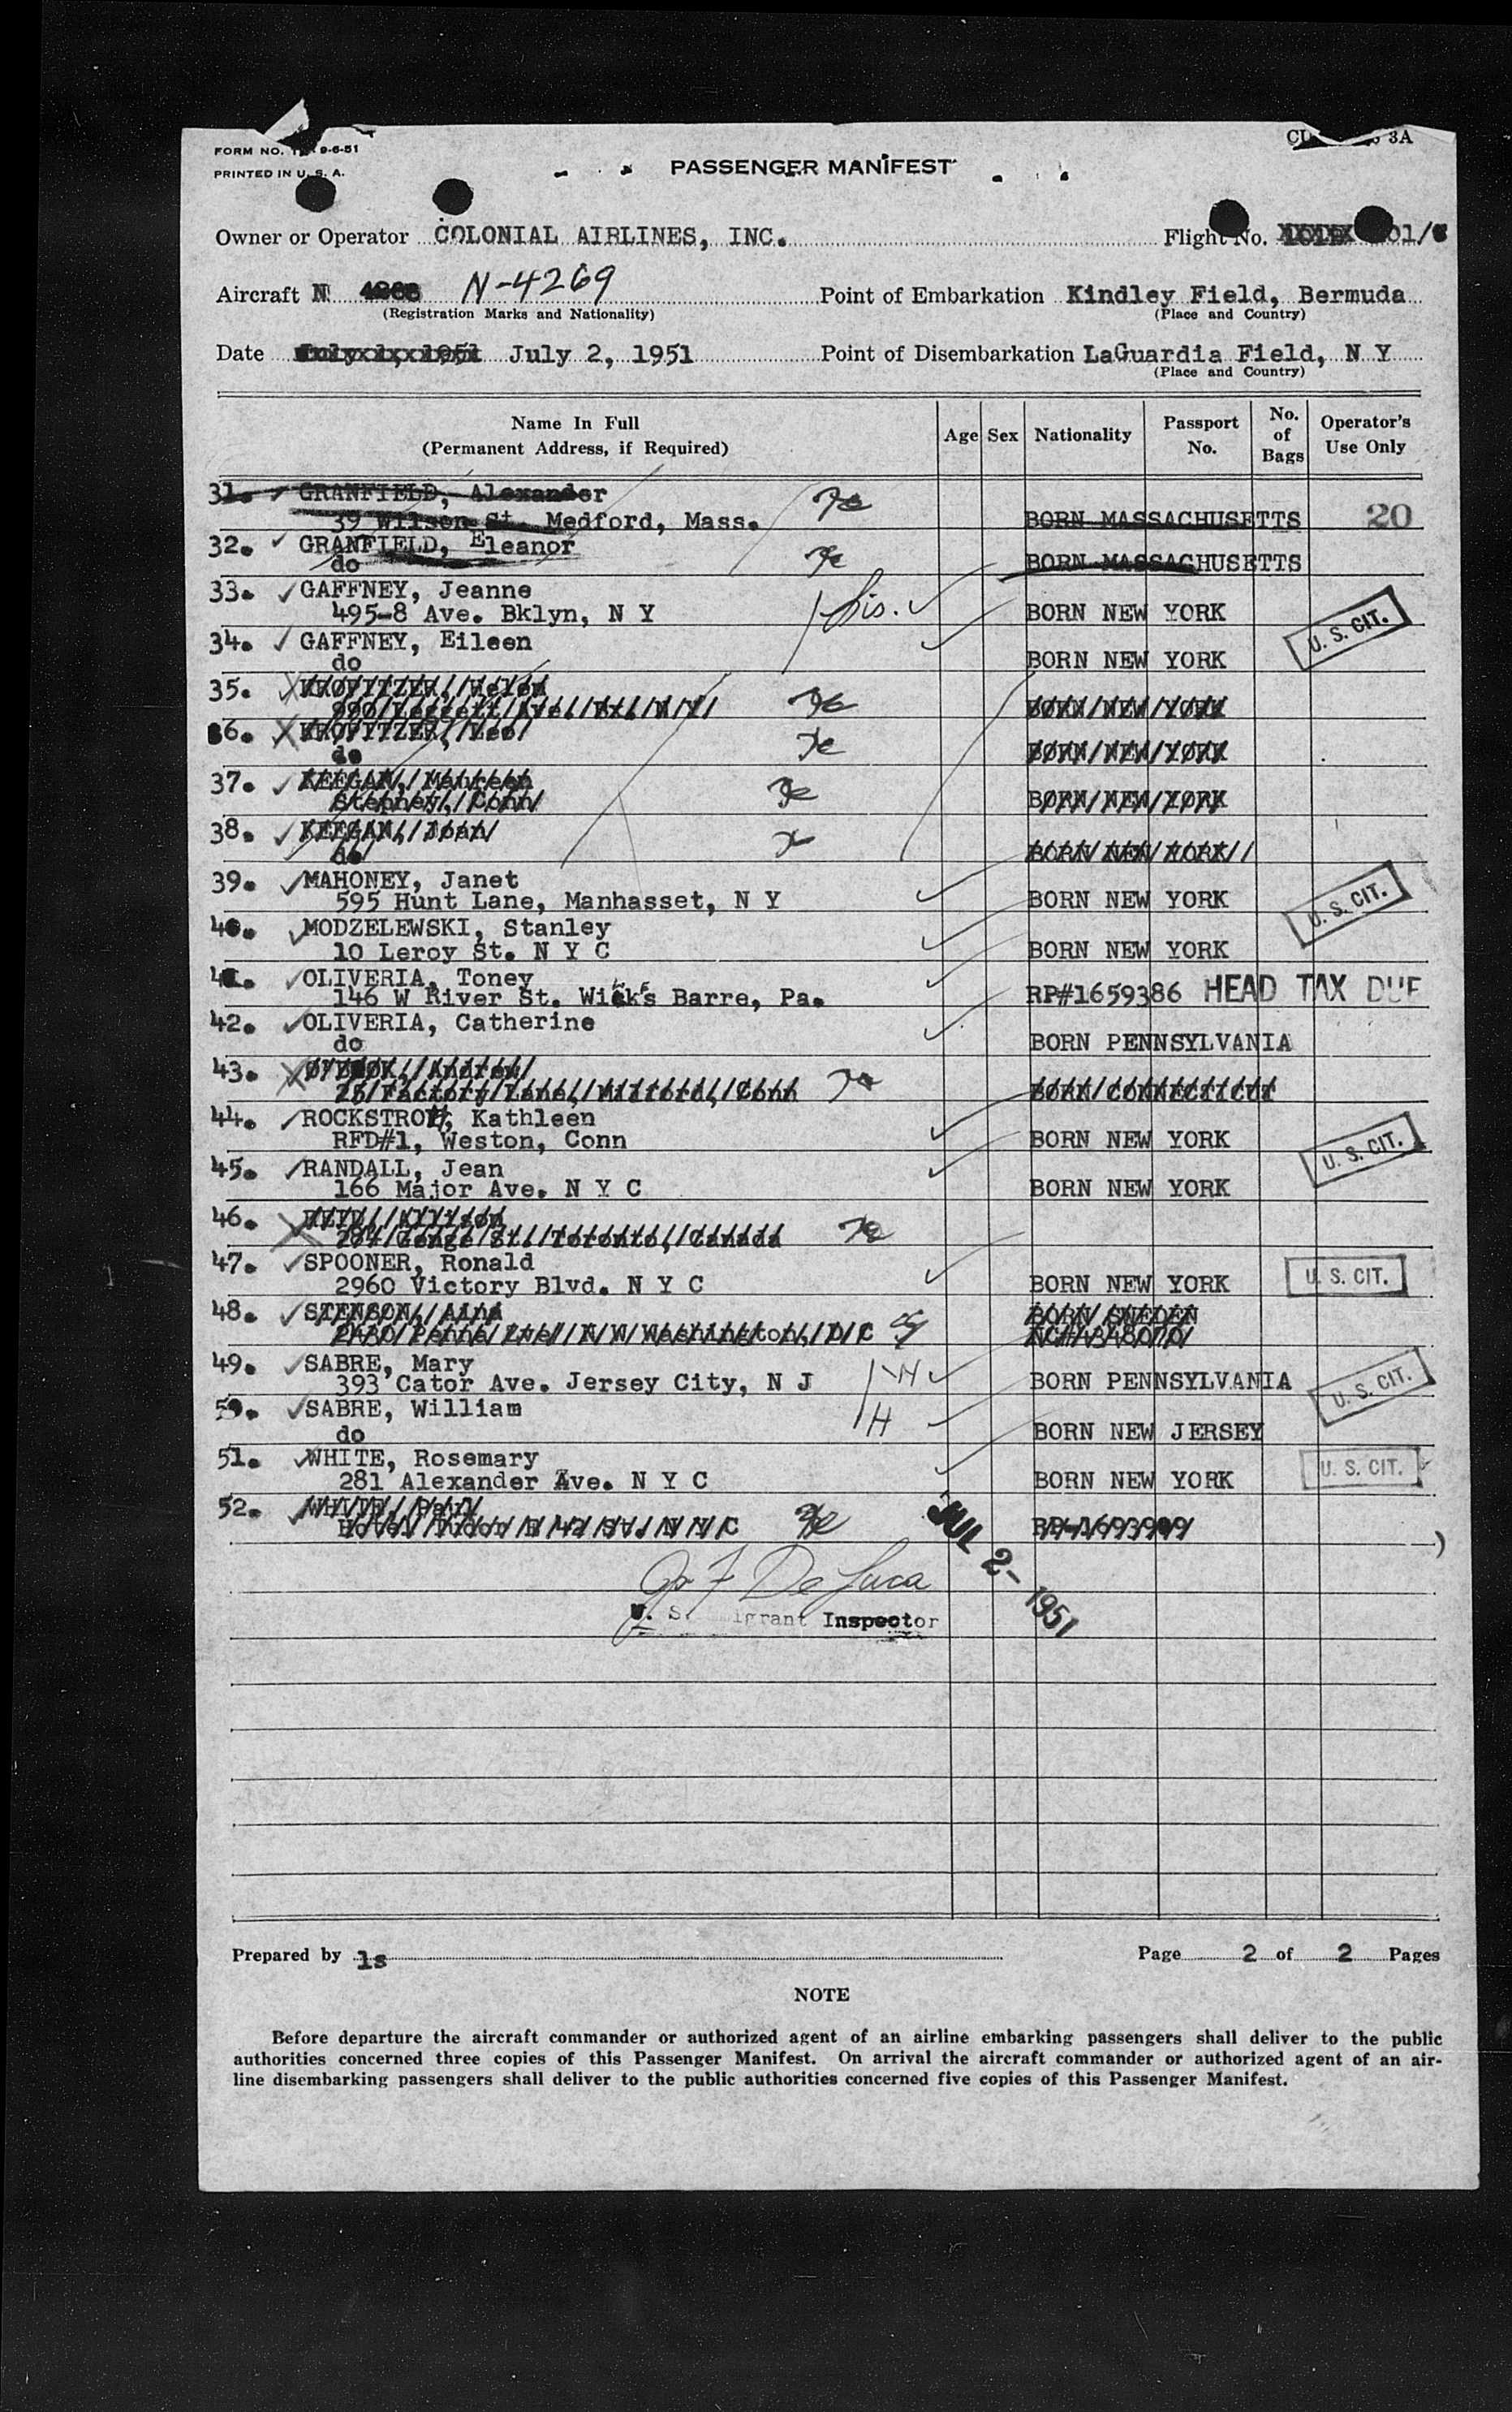 FORM NO. 9-6-51
PRINTED IN U. S. A.
3A
PASSENGER MANIFEST
Owner or Operator COLONIAL AIRLINES, INC. Flight No.
Aircraft N N-4269 Point of Embarkation Kindley Field, Bermuda
(Registration Marks and Nationality) (Place and Country)
Date July 2, 1951 Point of Disembarkation LaGuardia Field, N Y
(Place and Country)
Name In Full
(Permanent Address, if Required)
Age Sex Nationality Passport No. No. of Bags Operator's Use Only
31. GRANFIELD, Alexander
39 Wilson St. Medford, Mass. BORN MASSACHUSETTS 20
32. GRANFIELD, Eleanor
do BORN MASSACHUSETTS
33. GAFFNEY, Jeanne
495-8 Ave. Bklyn, N Y BORN NEW YORK
34. GAFFNEY, Eileen U. S. CIT.
do BORN NEW YORK
35.
BORN NEW YORK
36.
do BORN NEW YORK
37. KEEGAN, Maureen
Stepney, Conn BORN NEW YORK
38. KEEGAN, Joan
do BORN NEW YORK
39. MAHONEY, Janet
595 Hunt Lane, Manhasset, N Y BORN NEW YORK U. S. CIT.
40. MODZELEWSKI, Stanley
10 Leroy St. N Y C BORN NEW YORK
41. OLIVERIA, Toney
146 W River St. Barre, Pa. RP#1659386 HEAD TAX DUE
42. OLIVERIA, Catherine
do BORN PENNSYLVANIA
43. Andrew
25 Factory Lane, Milford, Conn BORN CONNECTICUT
44. ROCKSTROH, Kathleen
RFD#1, Weston, Conn BORN NEW YORK U. S. CIT.
45. RANDALL, Jean
166 Major Ave. N Y C BORN NEW YORK
46.
St. Toronto, Canada
47. SPOONER, Ronald
2960 Victory Blvd. N Y C BORN NEW YORK U. S. CIT.
48. STENSON, BORN SWEDEN
N W Washington, D C
49. SABRE, Mary
393 Cator Ave. Jersey City, N J H BORN PENNSYLVANIA U. S. CIT.
50. SABRE, William H
do BORN NEW JERSEY
51. WHITE, Rosemary
281 Alexander Ave. N Y C BORN NEW YORK U. S. CIT.
52. WHITE,
JUL 2- 1951
De Luca
U. S. Inspector
Prepared by ls Page 2 of 2 Pages
NOTE
Before departure the aircraft commander or authorized agent of an airline embarking passengers shall deliver to the public
authorities concerned three copies of this Passenger Manifest. On arrival the aircraft commander or authorized agent of an air-
line disembarking passengers shall deliver to the public authorities concerned five copies of this Passenger Manifest.